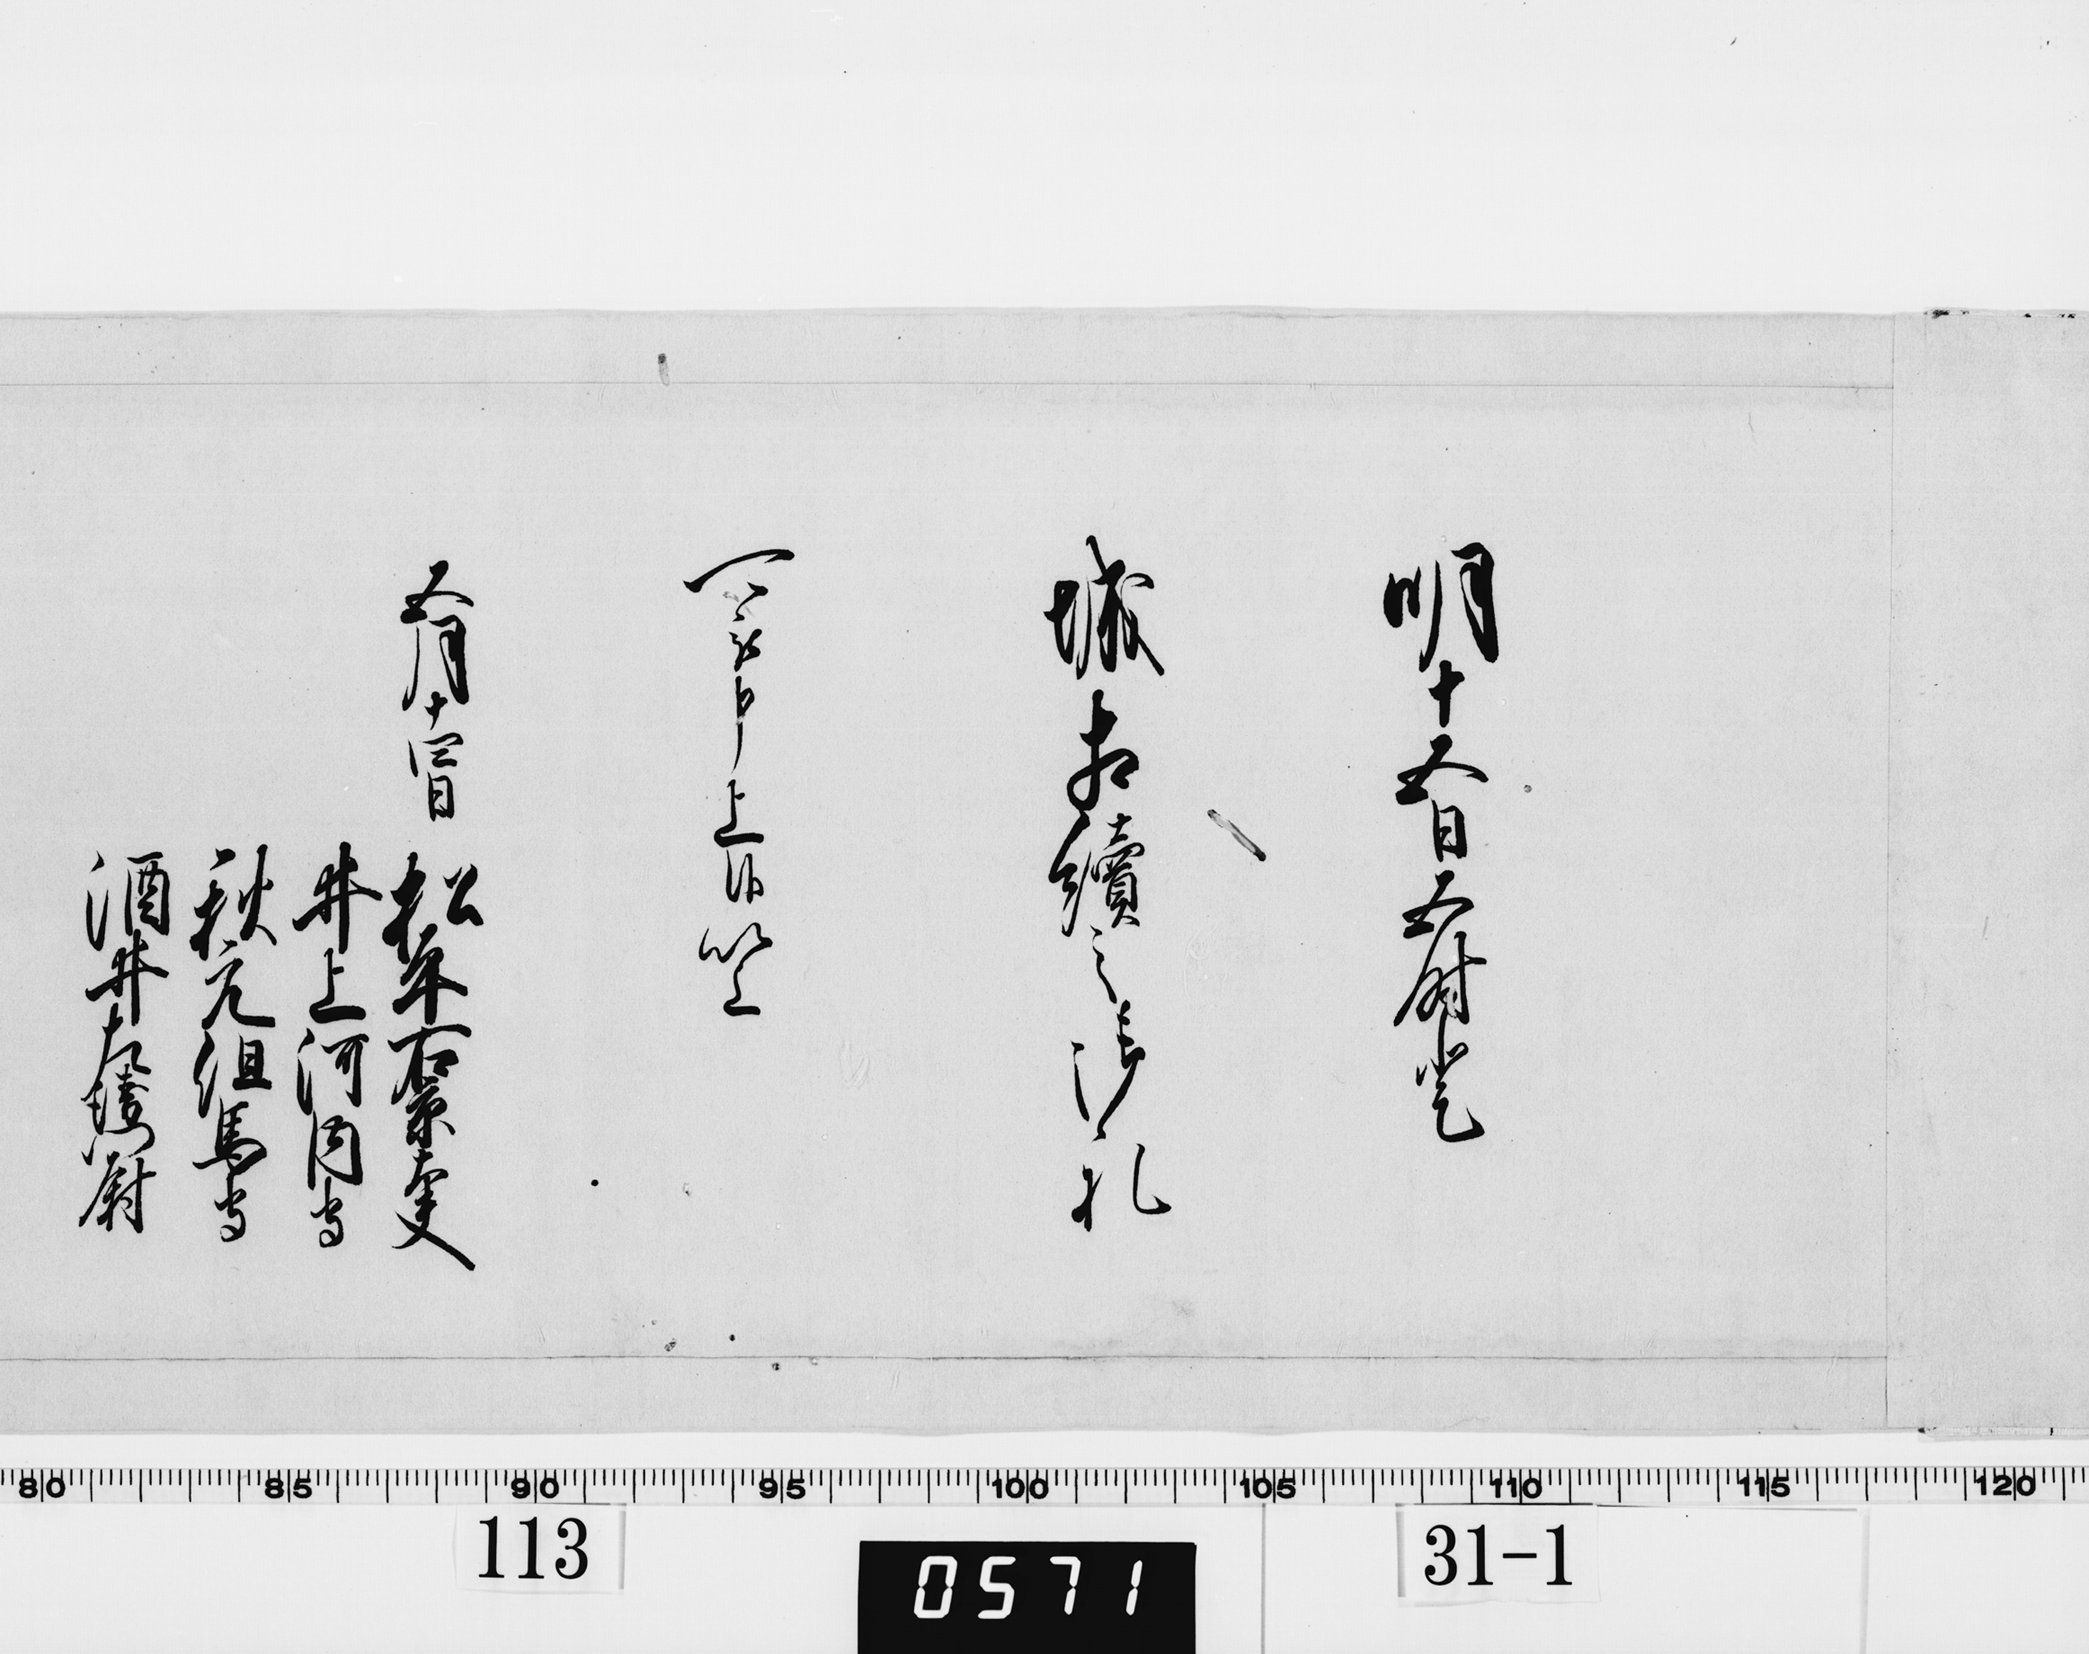 明十五日五時登
城相續之御礼
可被申上候以上
五月十四日
松平右京大夫
井上河内守
秋元但馬守
酒井左衛門尉
80 85 90 95 100 105 110 115 120
113
0571
31-1